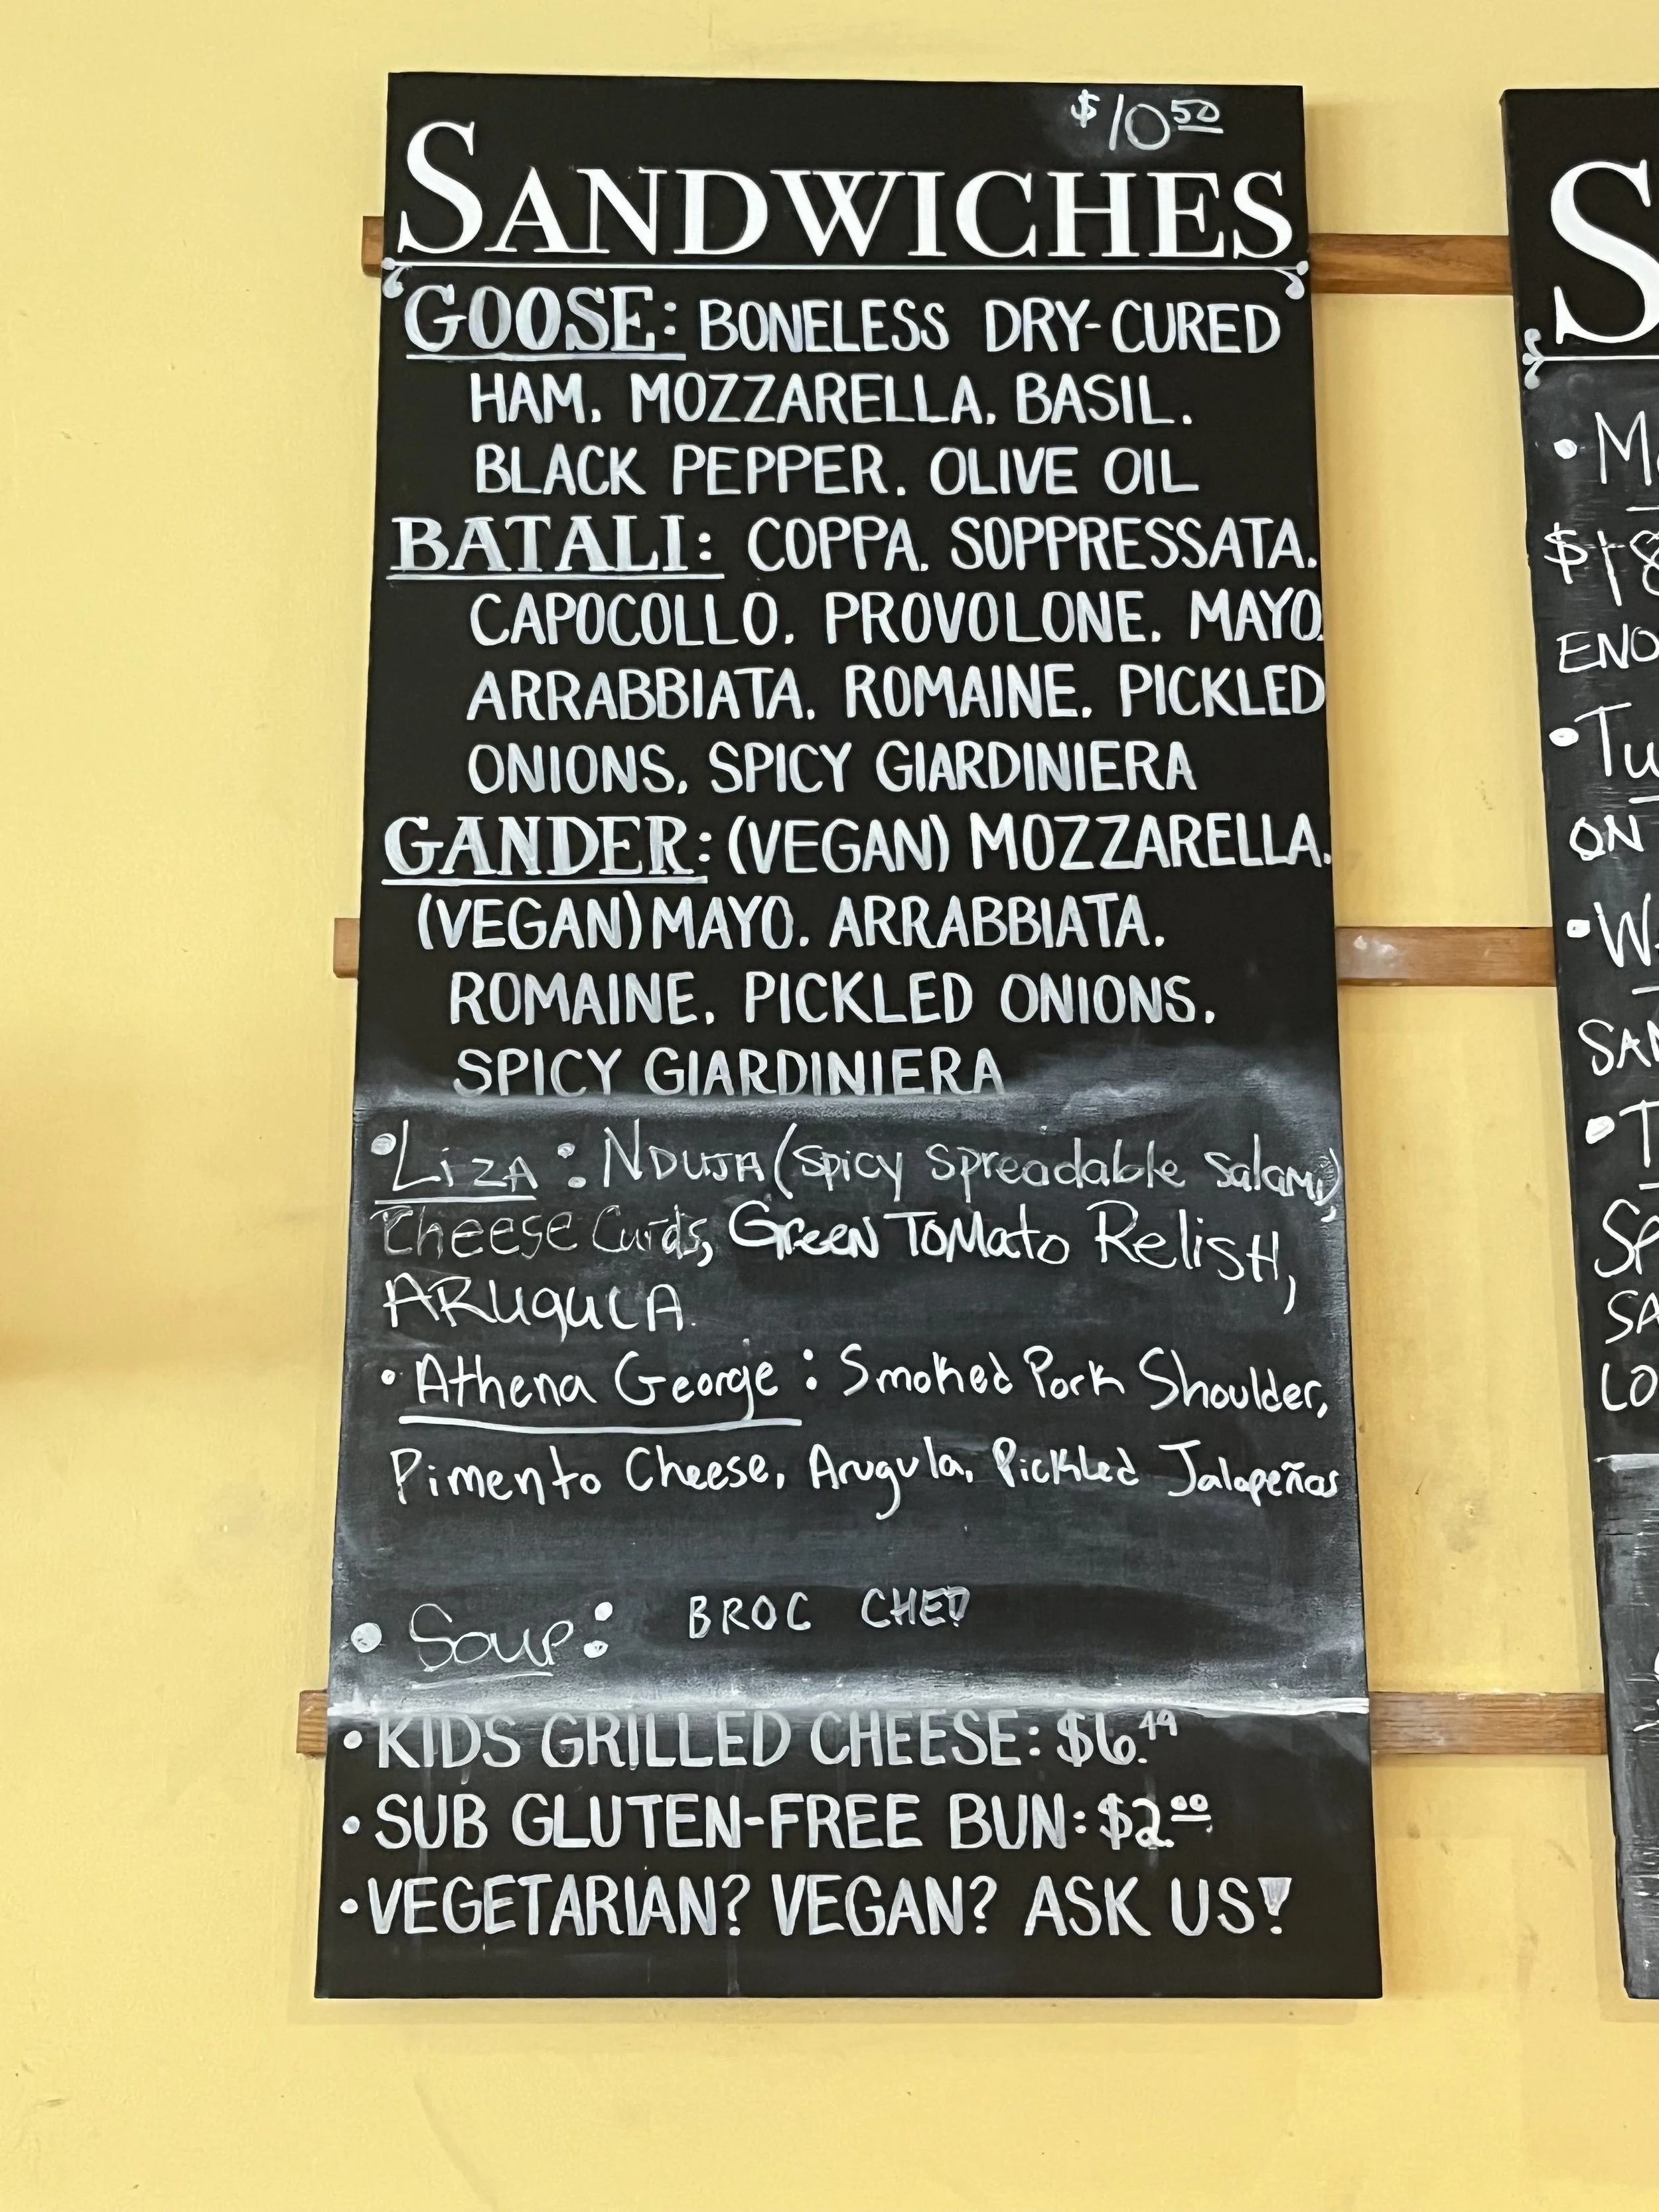 $10.50
SANDWICHES
GOOSE: BONELESS DRY-CURED
HAM, MOZZARELLA, BASIL,
BLACK PEPPER, OLIVE OIL
BATALI: COPPA, SOPPRESSATA,
CAPOCOLLO, PROVOLONE, MAYO,
ARRABBIATA, ROMAINE, PICKLED
ONIONS, SPICY GIARDINIERA
GANDER: (VEGAN) MOZZARELLA,
(VEGAN) MAYO, ARRABBIATA,
ROMAINE, PICKLED ONIONS,
SPICY GIARDINIERA
• LiZA: NDUJA (spicy spreadable salami)
Cheese Curds, GreeN ToMato RelisH,
ARUguLA.
• Athena George: Smoked Pork Shoulder,
Pimento Cheese, Arugula, Pickled Jalapeños
• Soup: BROC CHED
• KIDS GRILLED CHEESE: $6.49
• SUB GLUTEN-FREE BUN: $2.00
• VEGETARIAN? VEGAN? ASK US!
S
• M
$18
ENO
• Tu
ON
• W
SAN
• T
SP
SA
LO